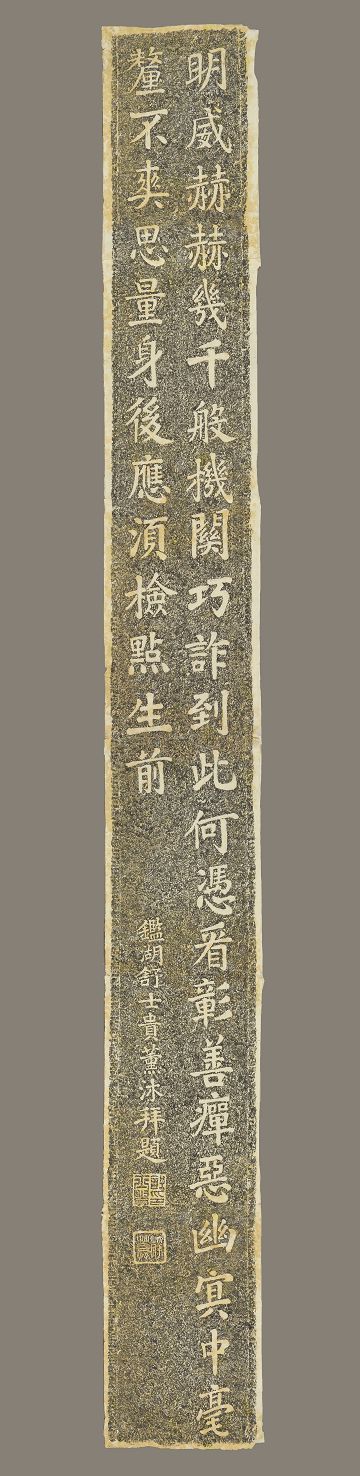 明威赫赫幾千般機關巧詐到此何憑看彰善癉惡幽冥中毫
釐不爽思量身後應須檢點生前
鑑湖舒士貴薰沐拜題